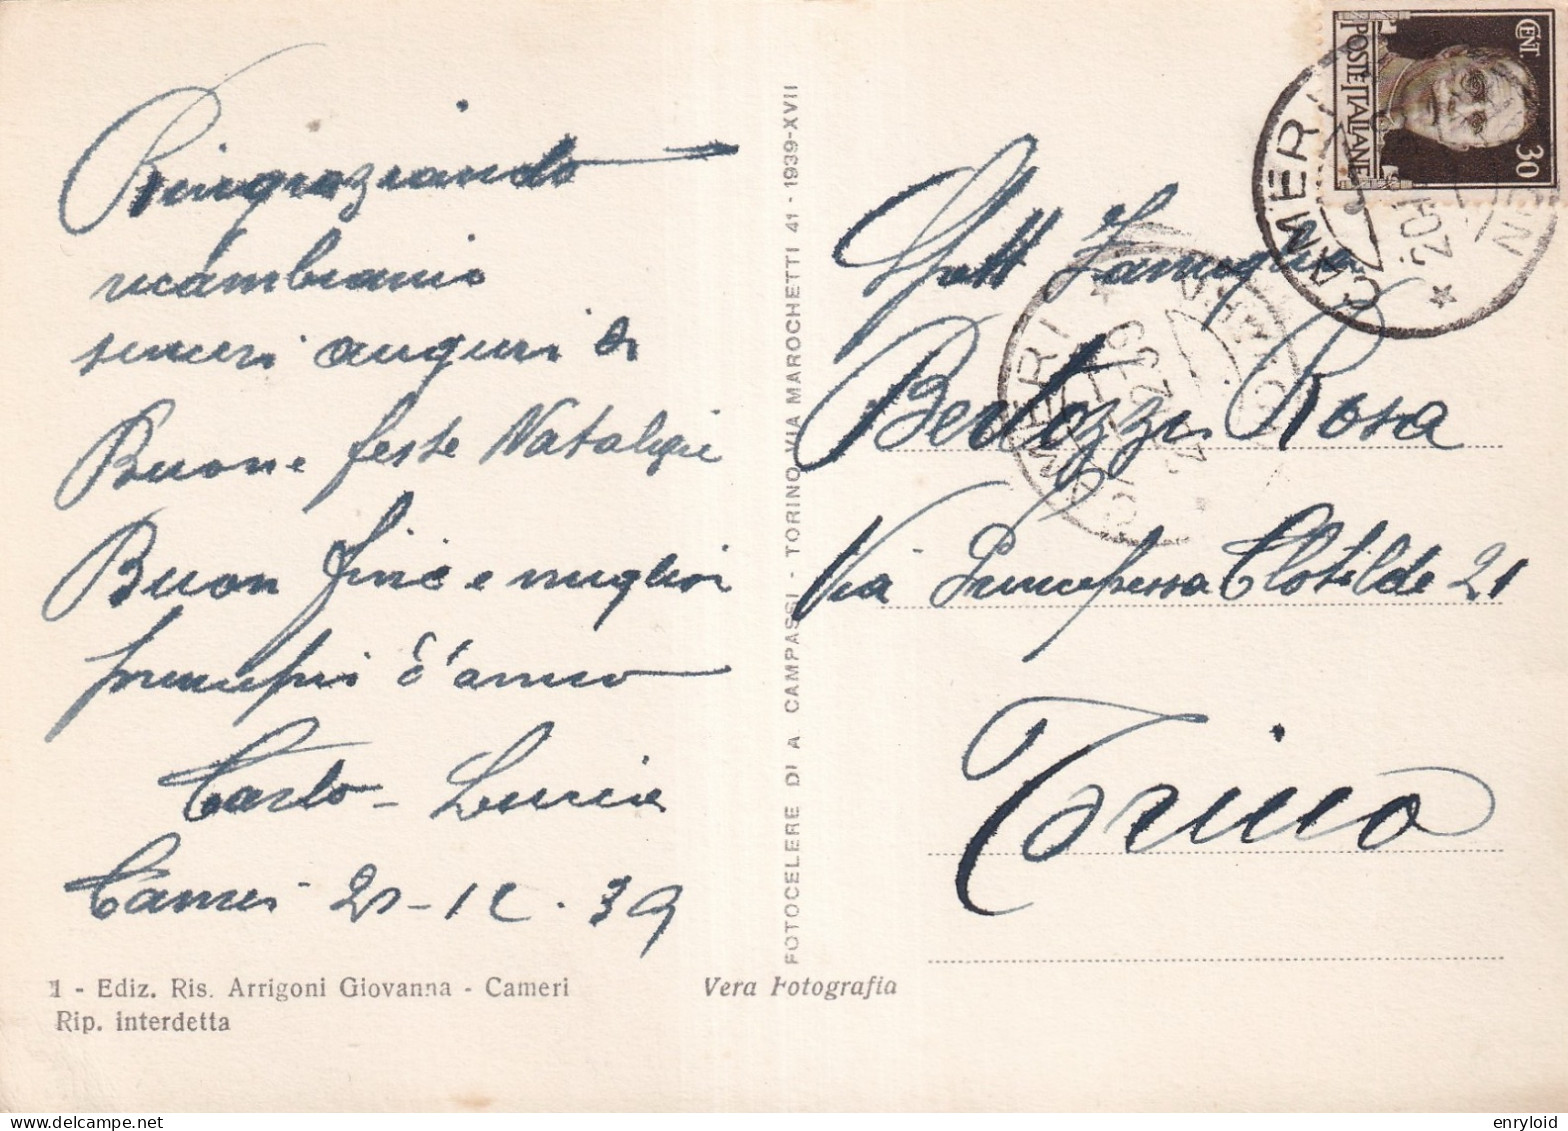 Ringraziando
ricambiamo
sinceri auguri di
Buone feste Natalizie
Buon fine e miglior
principio d'anno
Carlo - Lucia
Cameri 21-12-39
1 - Ediz. Ris. Arrigoni Giovanna - Cameri
Rip. interdetta
Vera Fotografia
FOTOCELERE DI A CAMPASSI - TORINO VIA MAROCHETTI 41 - 1939-XVII
CENT. 30
POSTE ITALIANE
CAMERI
CAMERI
Spett Famiglia
Bertozzi Rosa
Via Principessa Clotilde 21
Torino
enryloid